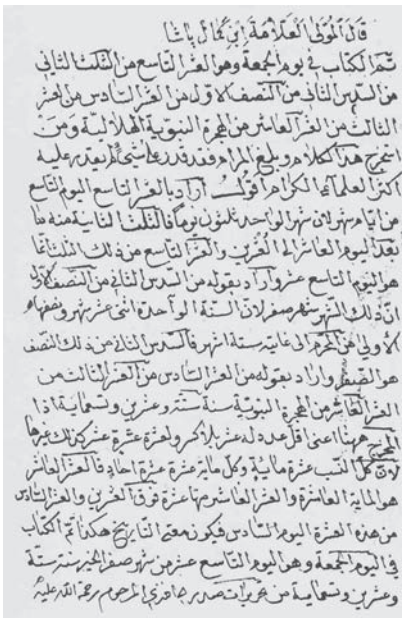 قال المولى العلامة ابن كمال باشا
تم الكتاب في يوم الجمعة وهو العشر التاسع من الثلث الثاني
من السدس الثاني من النصف الاول من العشر السادس من العشر
الثالث من العشر العاشر من الهجرة النبوية الهلالية ومن
استخرج هذا الكلام وبلغ المرام فقد قدر على شئ لم يقدر عليه
اكثر العلماء الكرام اقول اراد بالعشر التاسع اليوم التاسع
من ايام شهر لان شهر الواحد ثلثون يوما فالثلث الثانية منه ما
بعد اليوم العاشر الى العشرين والعشر التاسع من ذلك الثلث
هو اليوم التاسع عشر واراد بقوله من السدس الثاني من النصف الاول
ان ذلك الشهر شهر صفر لان السنة الواحدة اثنى عشر شهر ونصفها
الاولى من المحرم الى غاية ستة اشهر فالسدس الثاني من ذلك النصف
هو الصفر واراد بقوله من العشر السادس من العشر الثالث من
العشر العاشر من الهجرة النبوية سنة ستة وعشرين وتسعماية اذا
المخرج ههنا اعنى اقل عدد له عشر بلا كسر ولعشرة عشرة عشر كذلك
لان كل النسب عشرة مائية وكل ماية عشرة عشرة احاد فالعشر العاشر
هو الماية العاشرة والعشر العاشر منها عشرة فوق العشرين والعشر السادس
من هذه العشرة اليوم السادس فيكون معنى التاريخ هكذا تم الكتاب
في اليوم الجمعة وهو اليوم التاسع عشر من شهر صفر الخير سنة ستة
وعشرين وتسعماية من تحريرات صدر جا فندى المرحوم رحمة الله عليه